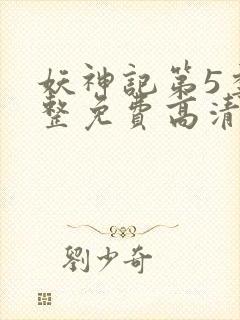 妖神記第5季
整免費高清
劉少奇